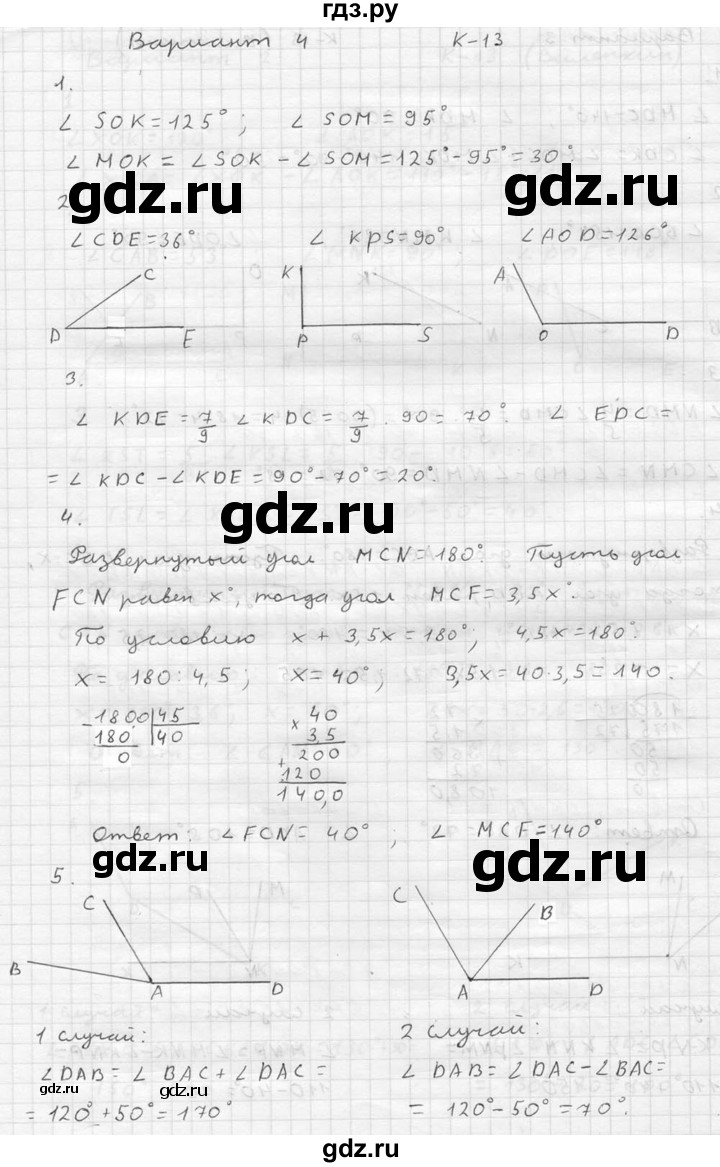 гдз.ру
Вариант 4 К-13
1.
∠ SOK = 125°; ∠ SOM = 95°
∠ MOK = ∠ SOK - ∠ SOM = 125° - 95° = 30°.
gdz.ru gdz.ru
2
∠ CDE = 36° ∠ KPS = 90° ∠ AOD = 126°
C K A
D E P S O D
3.
∠ KDE = 7/9 ∠ KDC = 7/9 · 90 = 70°. ∠ EDC =
= ∠ KDC - ∠ KDE = 90° - 70° = 20°.
gdz.ru
4.
Развернутый угол MCN = 180°. Пусть угол
FCN равен x°, тогда угол MCF = 3,5x°.
По условию x + 3,5x = 180°; 4,5x = 180°
x = 180 : 4,5; x = 40°; 3,5x = 40·3,5 = 140.
- 1800 | 45 × 40
180 | 40 3,5
0 + 200
120
140,0
Ответ: ∠ FCN = 40°; ∠ MCF = 140°
gdz.ru gdz.ru
5.
C C B
B A D A D
1 случай: 2 случай:
∠ DAB = ∠ BAC + ∠ DAC = ∠ DAB = ∠ DAC - ∠ BAC =
= 120° + 50° = 170° = 120° - 50° = 70°.
gdz.ru gdz.ru
gdz.ru